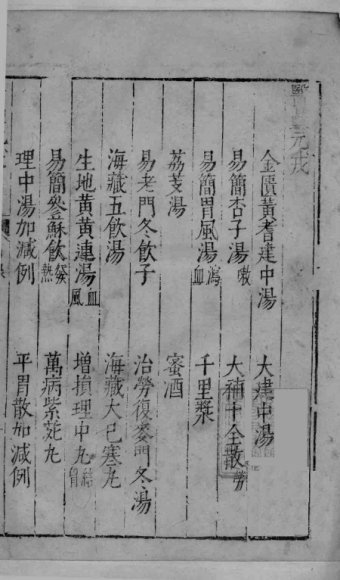 醫 元戎
金匱黃耆建中湯 大建中湯
易簡杏子湯嗽 大補十全散勞
易簡胃風湯瀉血 千里漿
荔芰湯 蜜酒
易老門冬飲子 治勞復麥門冬湯
海藏五飲湯 海藏大已寒丸
生地黃黃連湯血風 增損理中丸結胷
易簡參蘇飲發熱 萬病紫菀丸
理中湯加減例 平胃散加減例